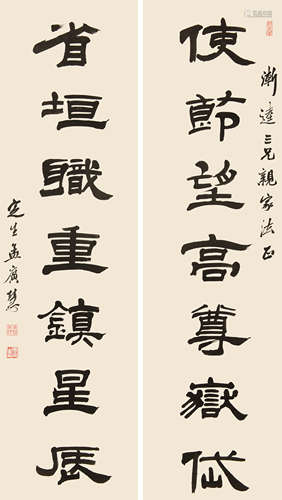 漸逵三兄親家法正
使節望高尊嶽岱
省垣職重鎮星辰
定生孟廣慧